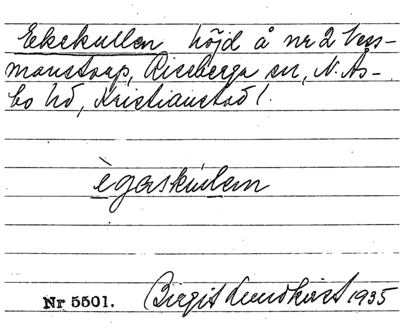 Ekekullen höjd å nr 2 Väs-
manstorp, Riseberga sn, N. Ås-
bo hd, Kristianstad l.
ègaskúlem
Nr 5501. Birgit Lundkvist 1935